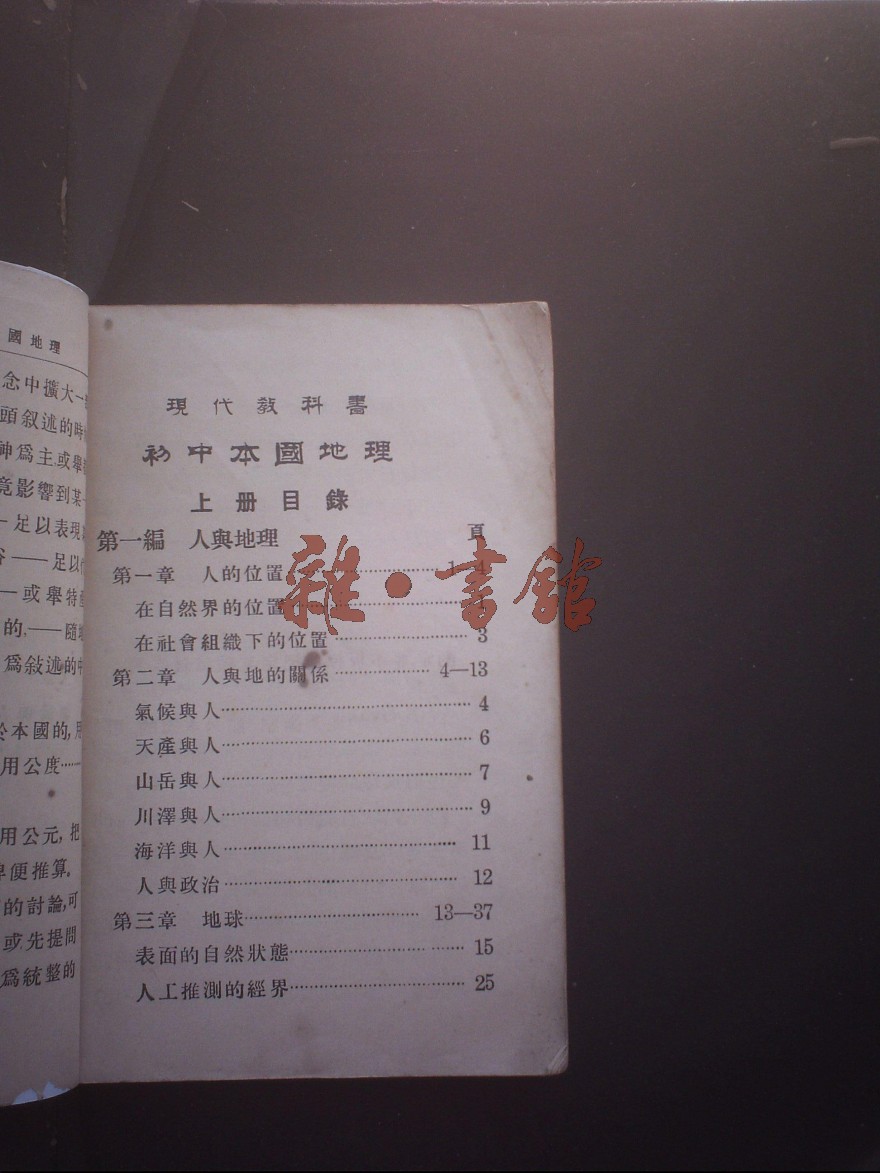 國地理
念中擴大一
頭叙述的時
神爲主,或舉
竟影響到某一
足以表現
——足以
——或舉特
的,——隨地
爲敍述的中
於本國的,用
用公度……
用公元,把
便推算,
的討論,可
或先提問
爲統整的
現代教科書
初中本國地理
上册目錄
第一編 人與地理 頁
第一章 人的位置……1—4
在自然界的位置……1
在社會組織下的位置……3
第二章 人與地的關係……4—13
氣候與人……4
天產與人……6
山岳與人……7
川澤與人……9
海洋與人……11
人與政治……12
第三章 地球……13—37
表面的自然狀態……15
人工推測的經界……25
雜·書館